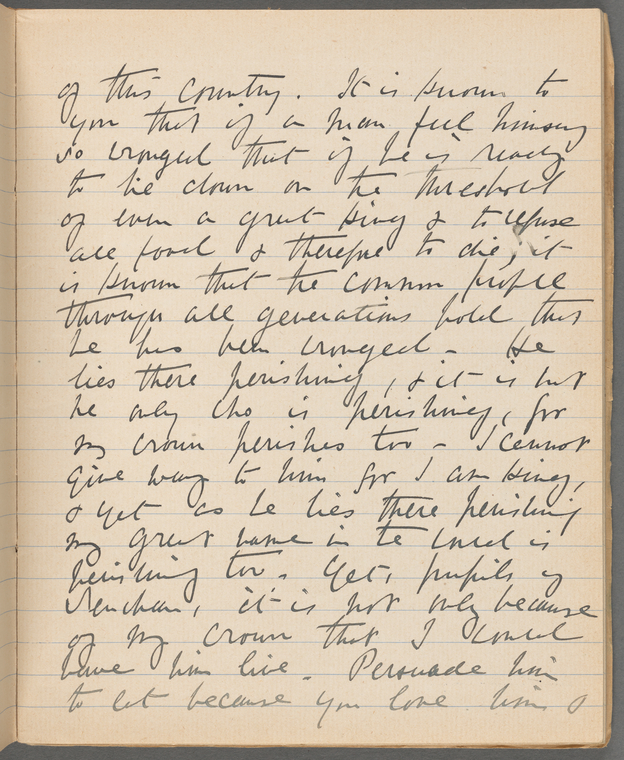 of this country. It is known to
you that if a man feel himself
so wronged that if he is ready
to lie down on the threshold
of even a great king & to refuse
all food & therefore to die, it
is known that the common people
through all generations hold that
he has been wronged – He
lies there perishing, & it is not
he only who is perishing, for
my crown perishes too – I cannot
give way to him for I am king,
& yet as he lies there perishing
my great name in the land is
perishing too. Yet, pupils of
Senchan, it is not only because
of my crown that I would
have him live. Persuade him
to eat because you love him &